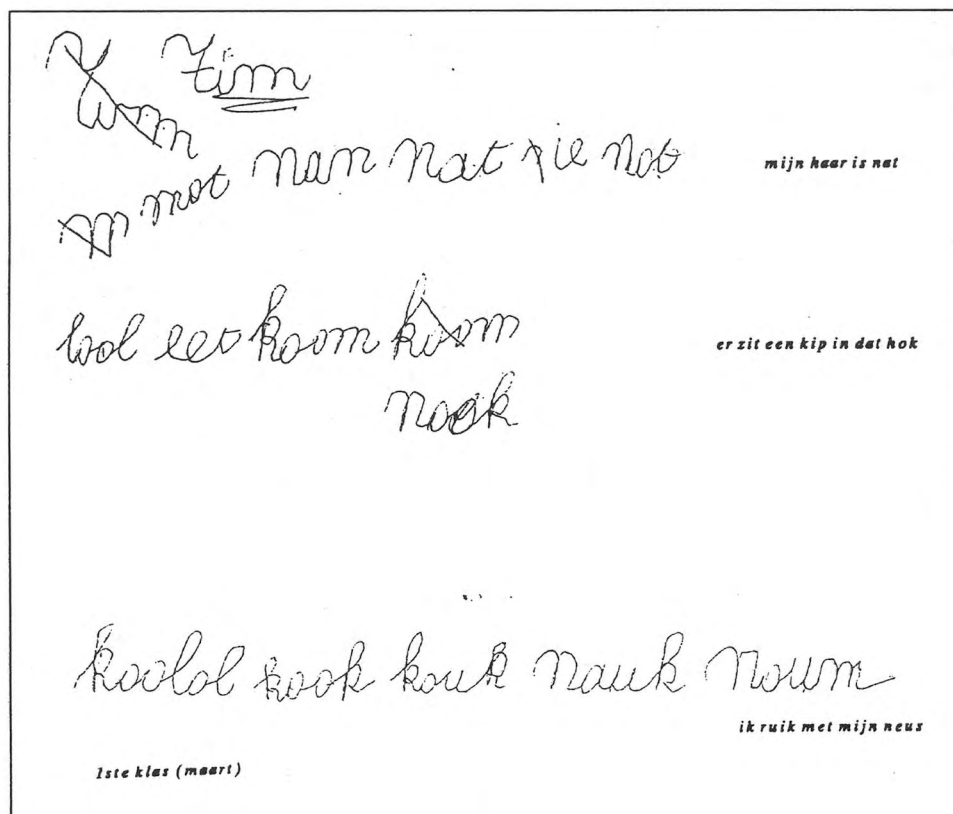 Tim
Tim
m mot nan nat rie not
mijn haar is nat
wol eet koom koom
er zit een kip in dat hok
nook
koolol kook kouk nauk noum
ik ruik met mijn neus
1ste klas (maart)